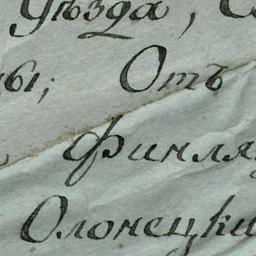 Уѣзда, С
ы; Отъ
Финля
Олонецки